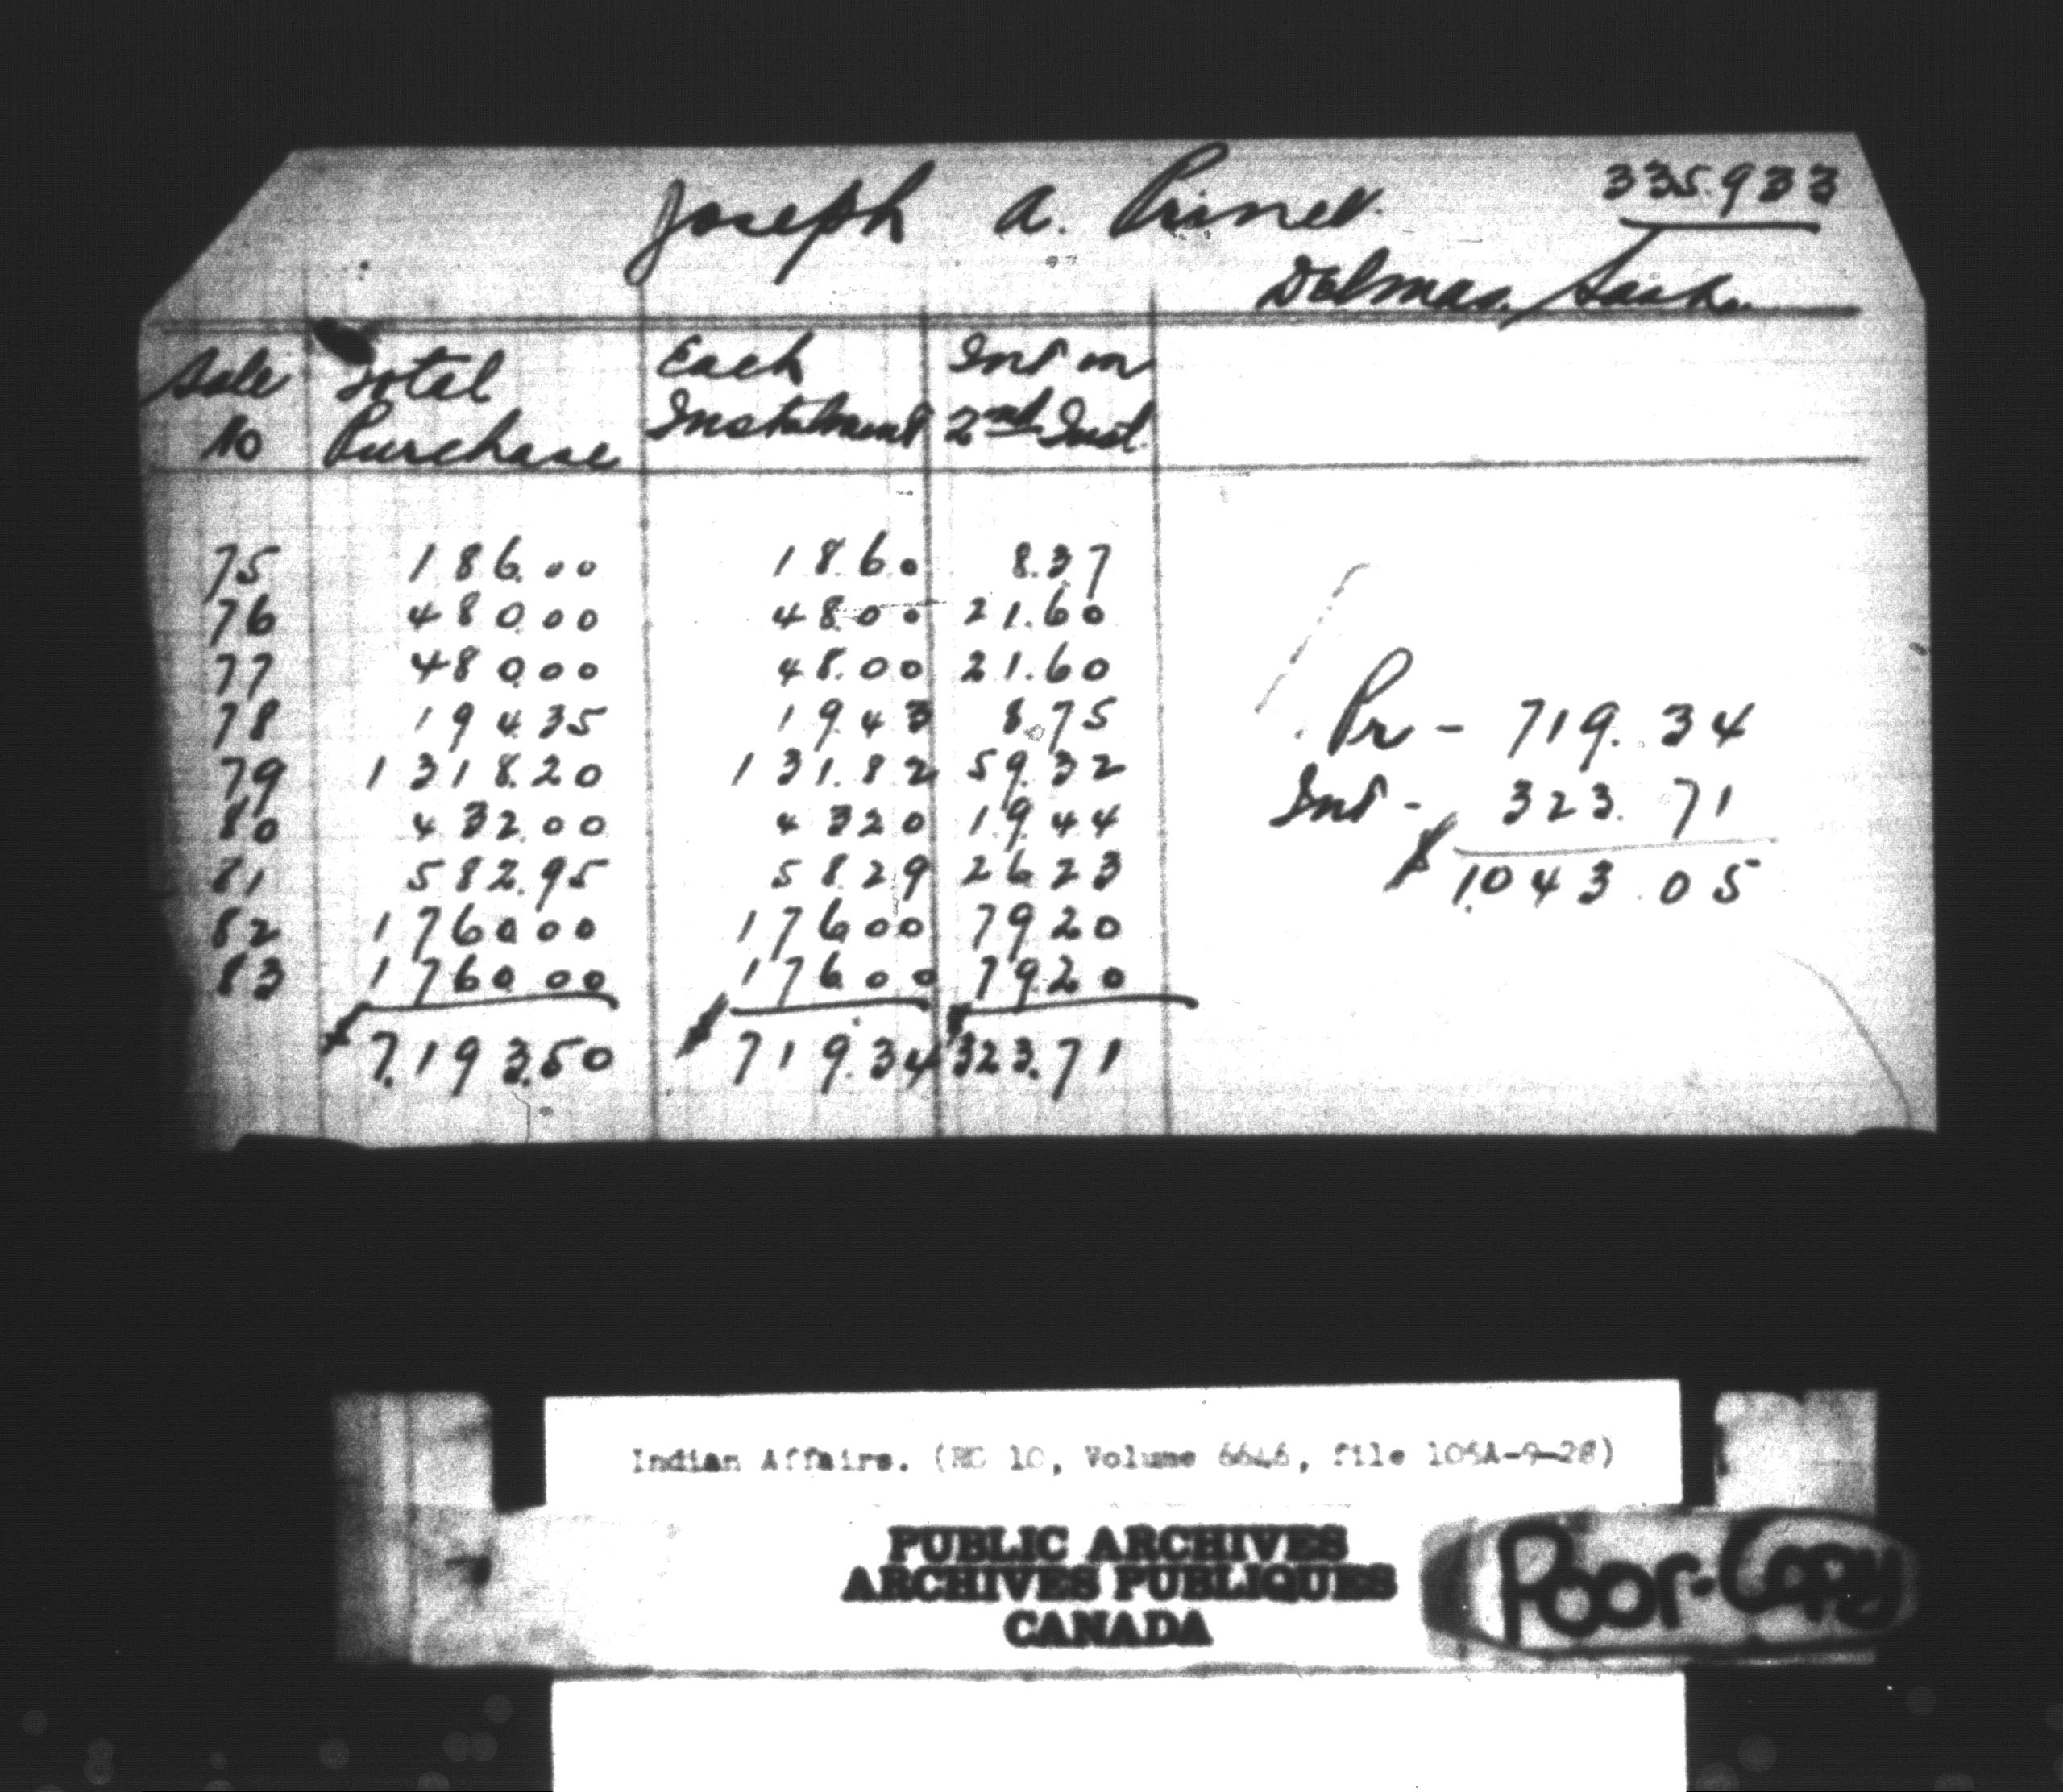 335.933
Joseph A. Prince
Delmas, Sask.
Sale No Total Purchase Each Instalment Int on 2nd Inst.
75 186.00 18.60 8.37
76 480.00 48.00 21.60
77 480.00 48.00 21.60
78 194.35 19.43 8.75
79 1318.20 131.82 59.32
80 432.00 43 20 19.44
81 582.95 58 29 26 23
82 1760.00 176.00 79 20
83 1760.00 176.00 79.20
$7,193.50 $719.34 $323.71
Pr - 719.34
Int - 323.71
$1,043.05
Indian Affairs. (RG 10, Volume 6646, file 105A-9-28)
PUBLIC ARCHIVES
ARCHIVES PUBLIQUES
CANADA
Poor-Copy